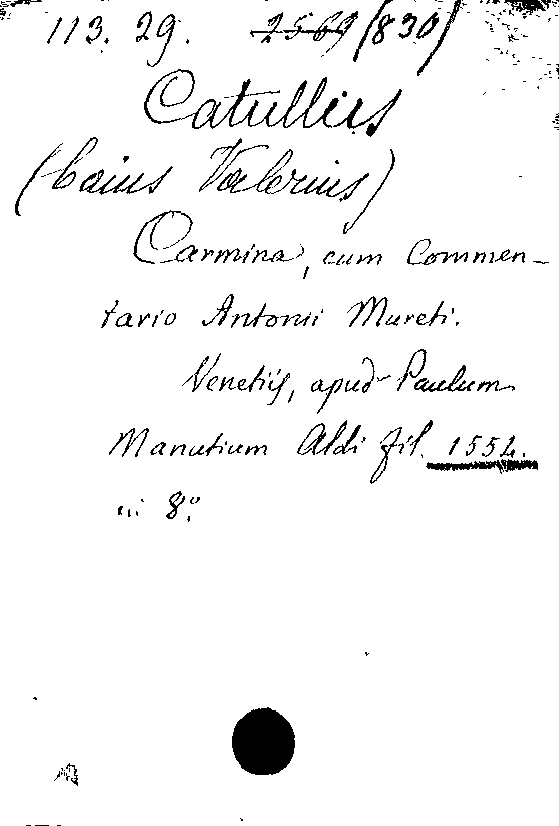 113. 29. 2569 (830)
Catullus
(Caius Valerius)
Carmina, cum Commen-
tario Antonii Mureti.
Venetiis, apud Paulum
Manutium Aldi fil. 1554.
in 8º.